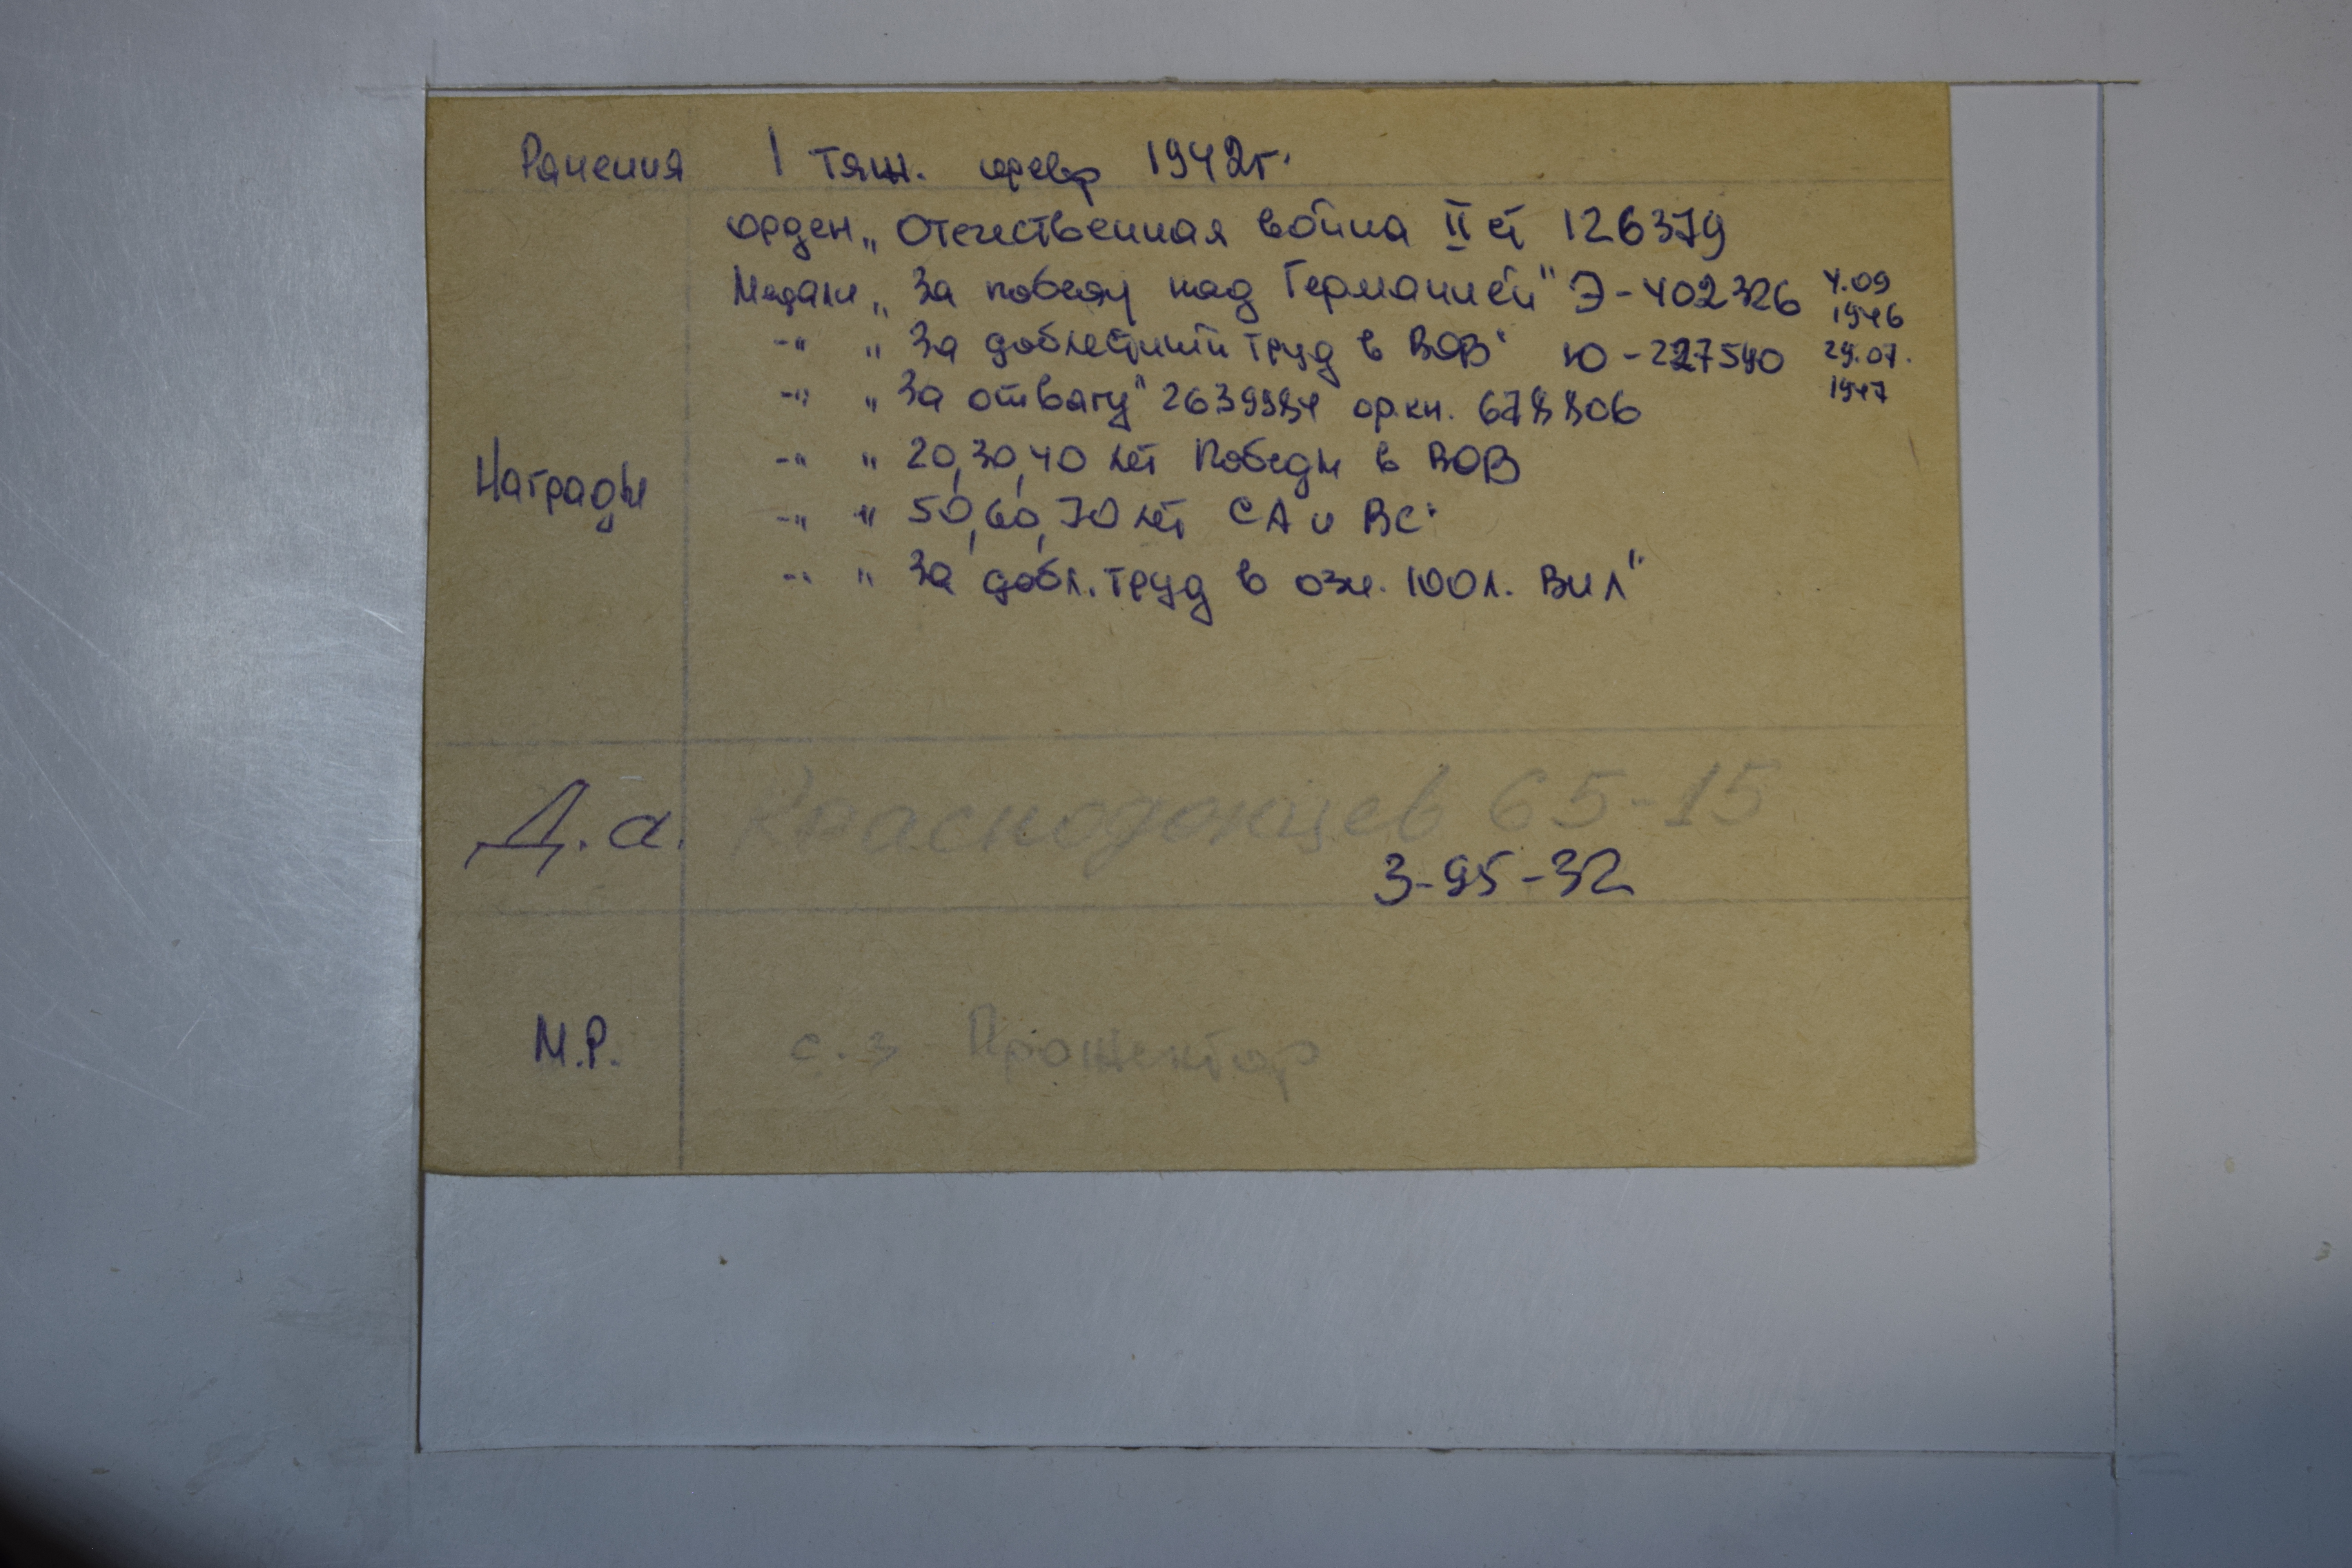 Ранения 1 тяж. февр 1942г.
орден „Отечественная война II ст 126379
Медали „За победу над Германией" Э-402326 4.09 1946
-"- „За доблестный труд в ВОВ" Ю-227540 29.07. 1947
-"- „За отвагу" 2639984 ор.кн. 678806
-"- „20,30,40 лет Победы в ВОВ
Награды
-"- „50,60,70 лет СА и ВС"
-"- „За добл. труд в озн. 100л. ВИЛ"
Д.а. Краснодонцев 65-15
3-95-32
М.Р. с.з Прожектор